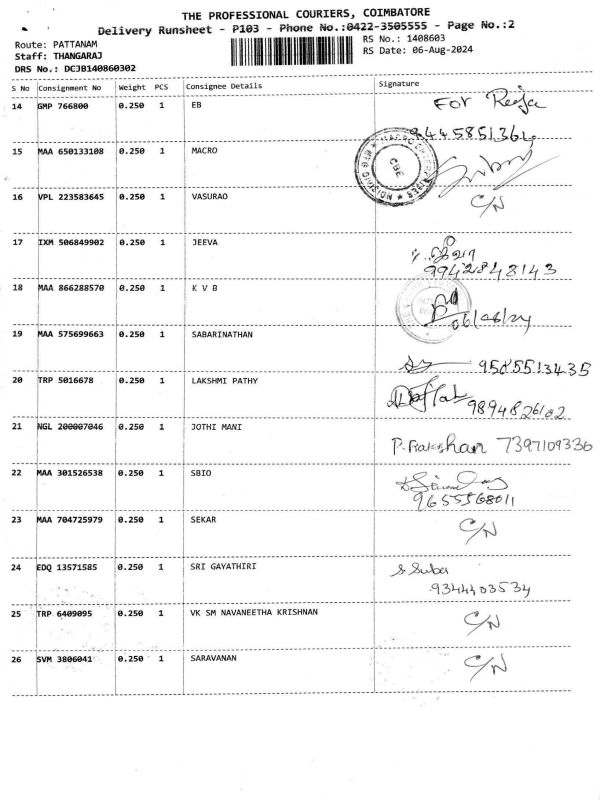 THE PROFESSIONAL COURIERS, COIMBATORE
Delivery Runsheet - P103 - Phone No.:0422-3505555 - Page No.:2
Route: PATTANAM
RS No.: 1408603
Staff: THANGARAJ
RS Date: 06-Aug-2024
DRS No.: DCJB140860302
S No Consignment No Weight PCS Consignee Details Signature
14 GMP 766800 0.250 1 EB For Reeja
9445851364
15 MAA 650133108 0.250 1 MACRO
CBE
16 VPL 223583645 0.250 1 VASURAO C/N
17 IXM 506849902 0.250 1 JEEVA
9942848143
18 MAA 866288570 0.250 1 K V B
06/08/24
19 MAA 575699663 0.250 1 SABARINATHAN
9585513435
20 TRP 5016678 0.250 1 LAKSHMI PATHY
9894826102
21 NGL 200007046 0.250 1 JOTHI MANI P. Rakshan 7397109336
22 MAA 301526538 0.250 1 SBIO
9655568011
23 MAA 704725979 0.250 1 SEKAR C/N
24 EDQ 13571585 0.250 1 SRI GAYATHIRI S. Suba
9344403534
25 TRP 6409095 0.250 1 VK SM NAVANEETHA KRISHNAN C/N
26 SVM 3806041 0.250 1 SARAVANAN C/N